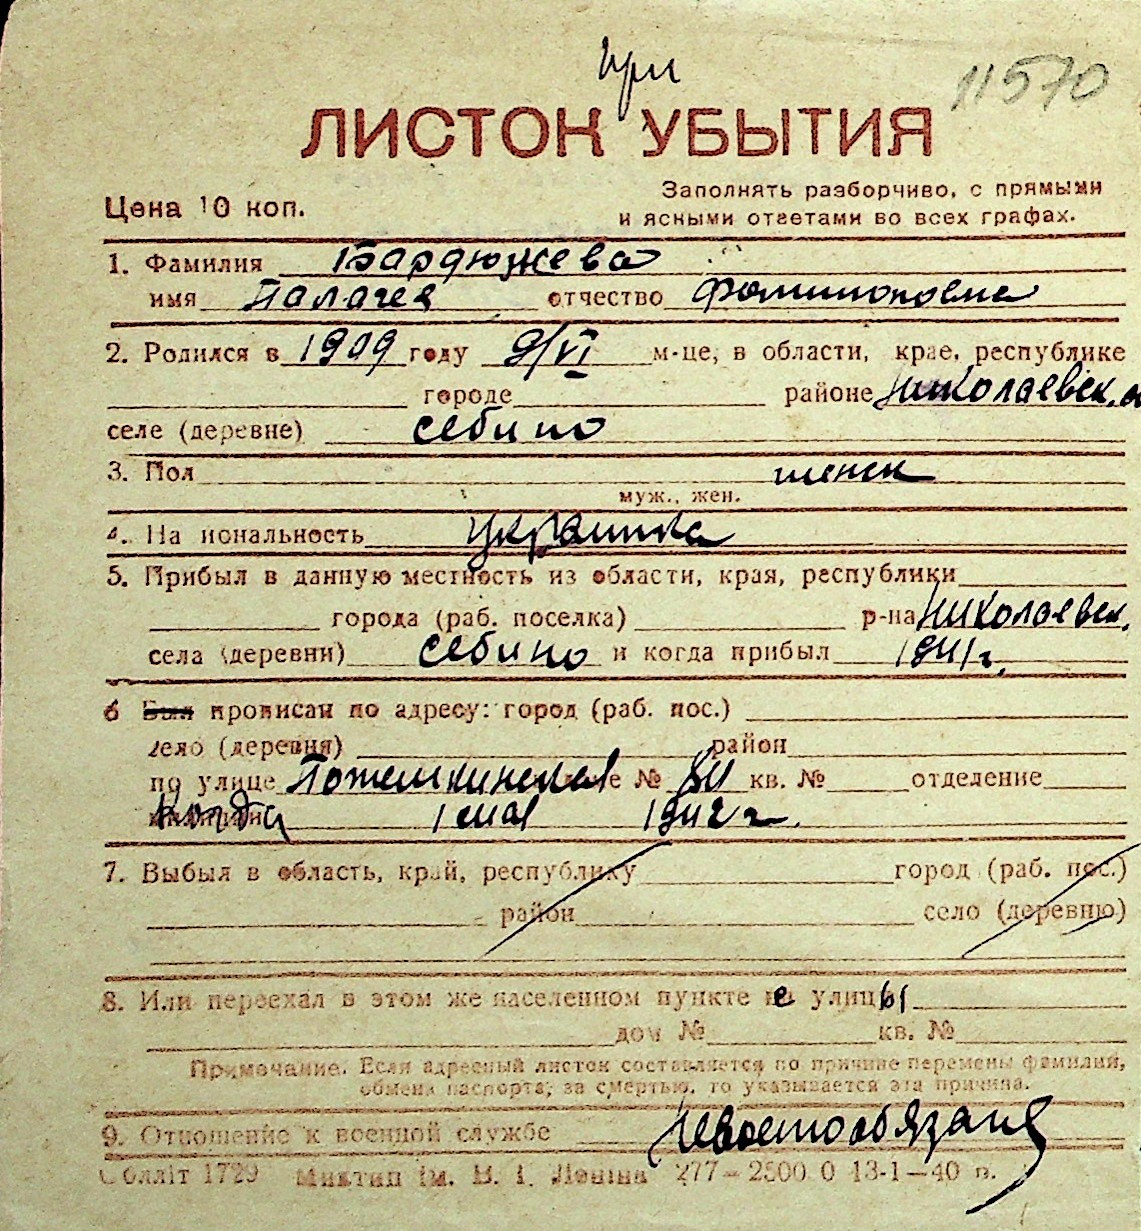 при
11570
ЛИСТОК УБЫТИЯ
Цена 10 коп.
Заполнять разборчиво, с прямыми
и ясными ответами во всех графах.
1. Фамилия Бардюжева
имя Палагея отчество Филипповна
2. Родился в 1909 году 9/VI м-це, в области, крае, республике
городе районе Николаевск. о
селе (деревне) Себино
3. Пол женск
муж., жен.
4. На иональность украинка
5. Прибыл в данную местность из области, края, республики
города (раб. поселка) р-на Николаевск.
села (деревни) Себино и когда прибыл 1941 г.
6 Был прописан по адресу: город (раб. пос.)
село (деревня) район
по улице Потемкинская № 84 кв. № отделение
Когда 1 мая 1942 г.
7. Выбыл в область, край, республику город (раб. пос.)
район село (деревню)
8. Или переехал в этом же населенном пункте с улицы
дом № кв. №
Примечание. Если адресный листок составляется по причине перемены фамилии,
обмена паспорта, за смертью, то указывается эта причина.
9. Отношение к военной службе Невоеннообязаная
Обллiт 1729 Миктип iм. В. I. Ленiна 277—2500 0 13-1—40 п.